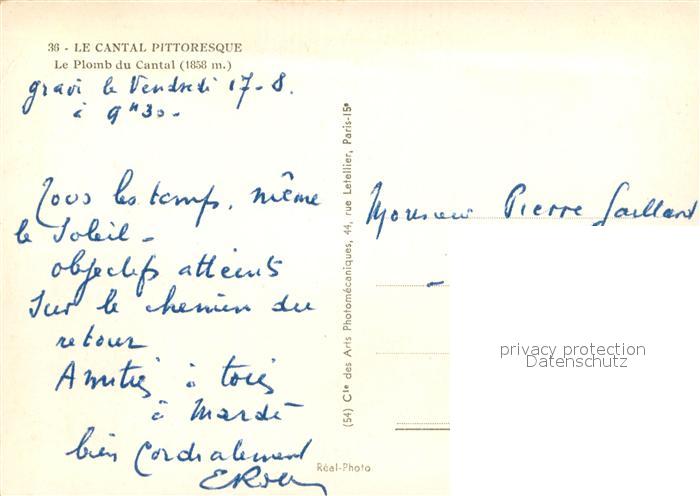 36 - LE CANTAL PITTORESQUE
Le Plomb du Cantal (1858 m.)
gravi le Vendredi 17-8.
à 9H30-
Tous les temps, même
le Soleil -
objectifs atteints
Sur le chemin du
retour
Amitiés à tous
à Mardi
bien Cordialement
Monsieur Pierre Gaillard
-
privacy protection
Datenschutz
(54) Cie des Arts Photomécaniques, 44, rue Letellier, Paris-15e
Réal-Photo